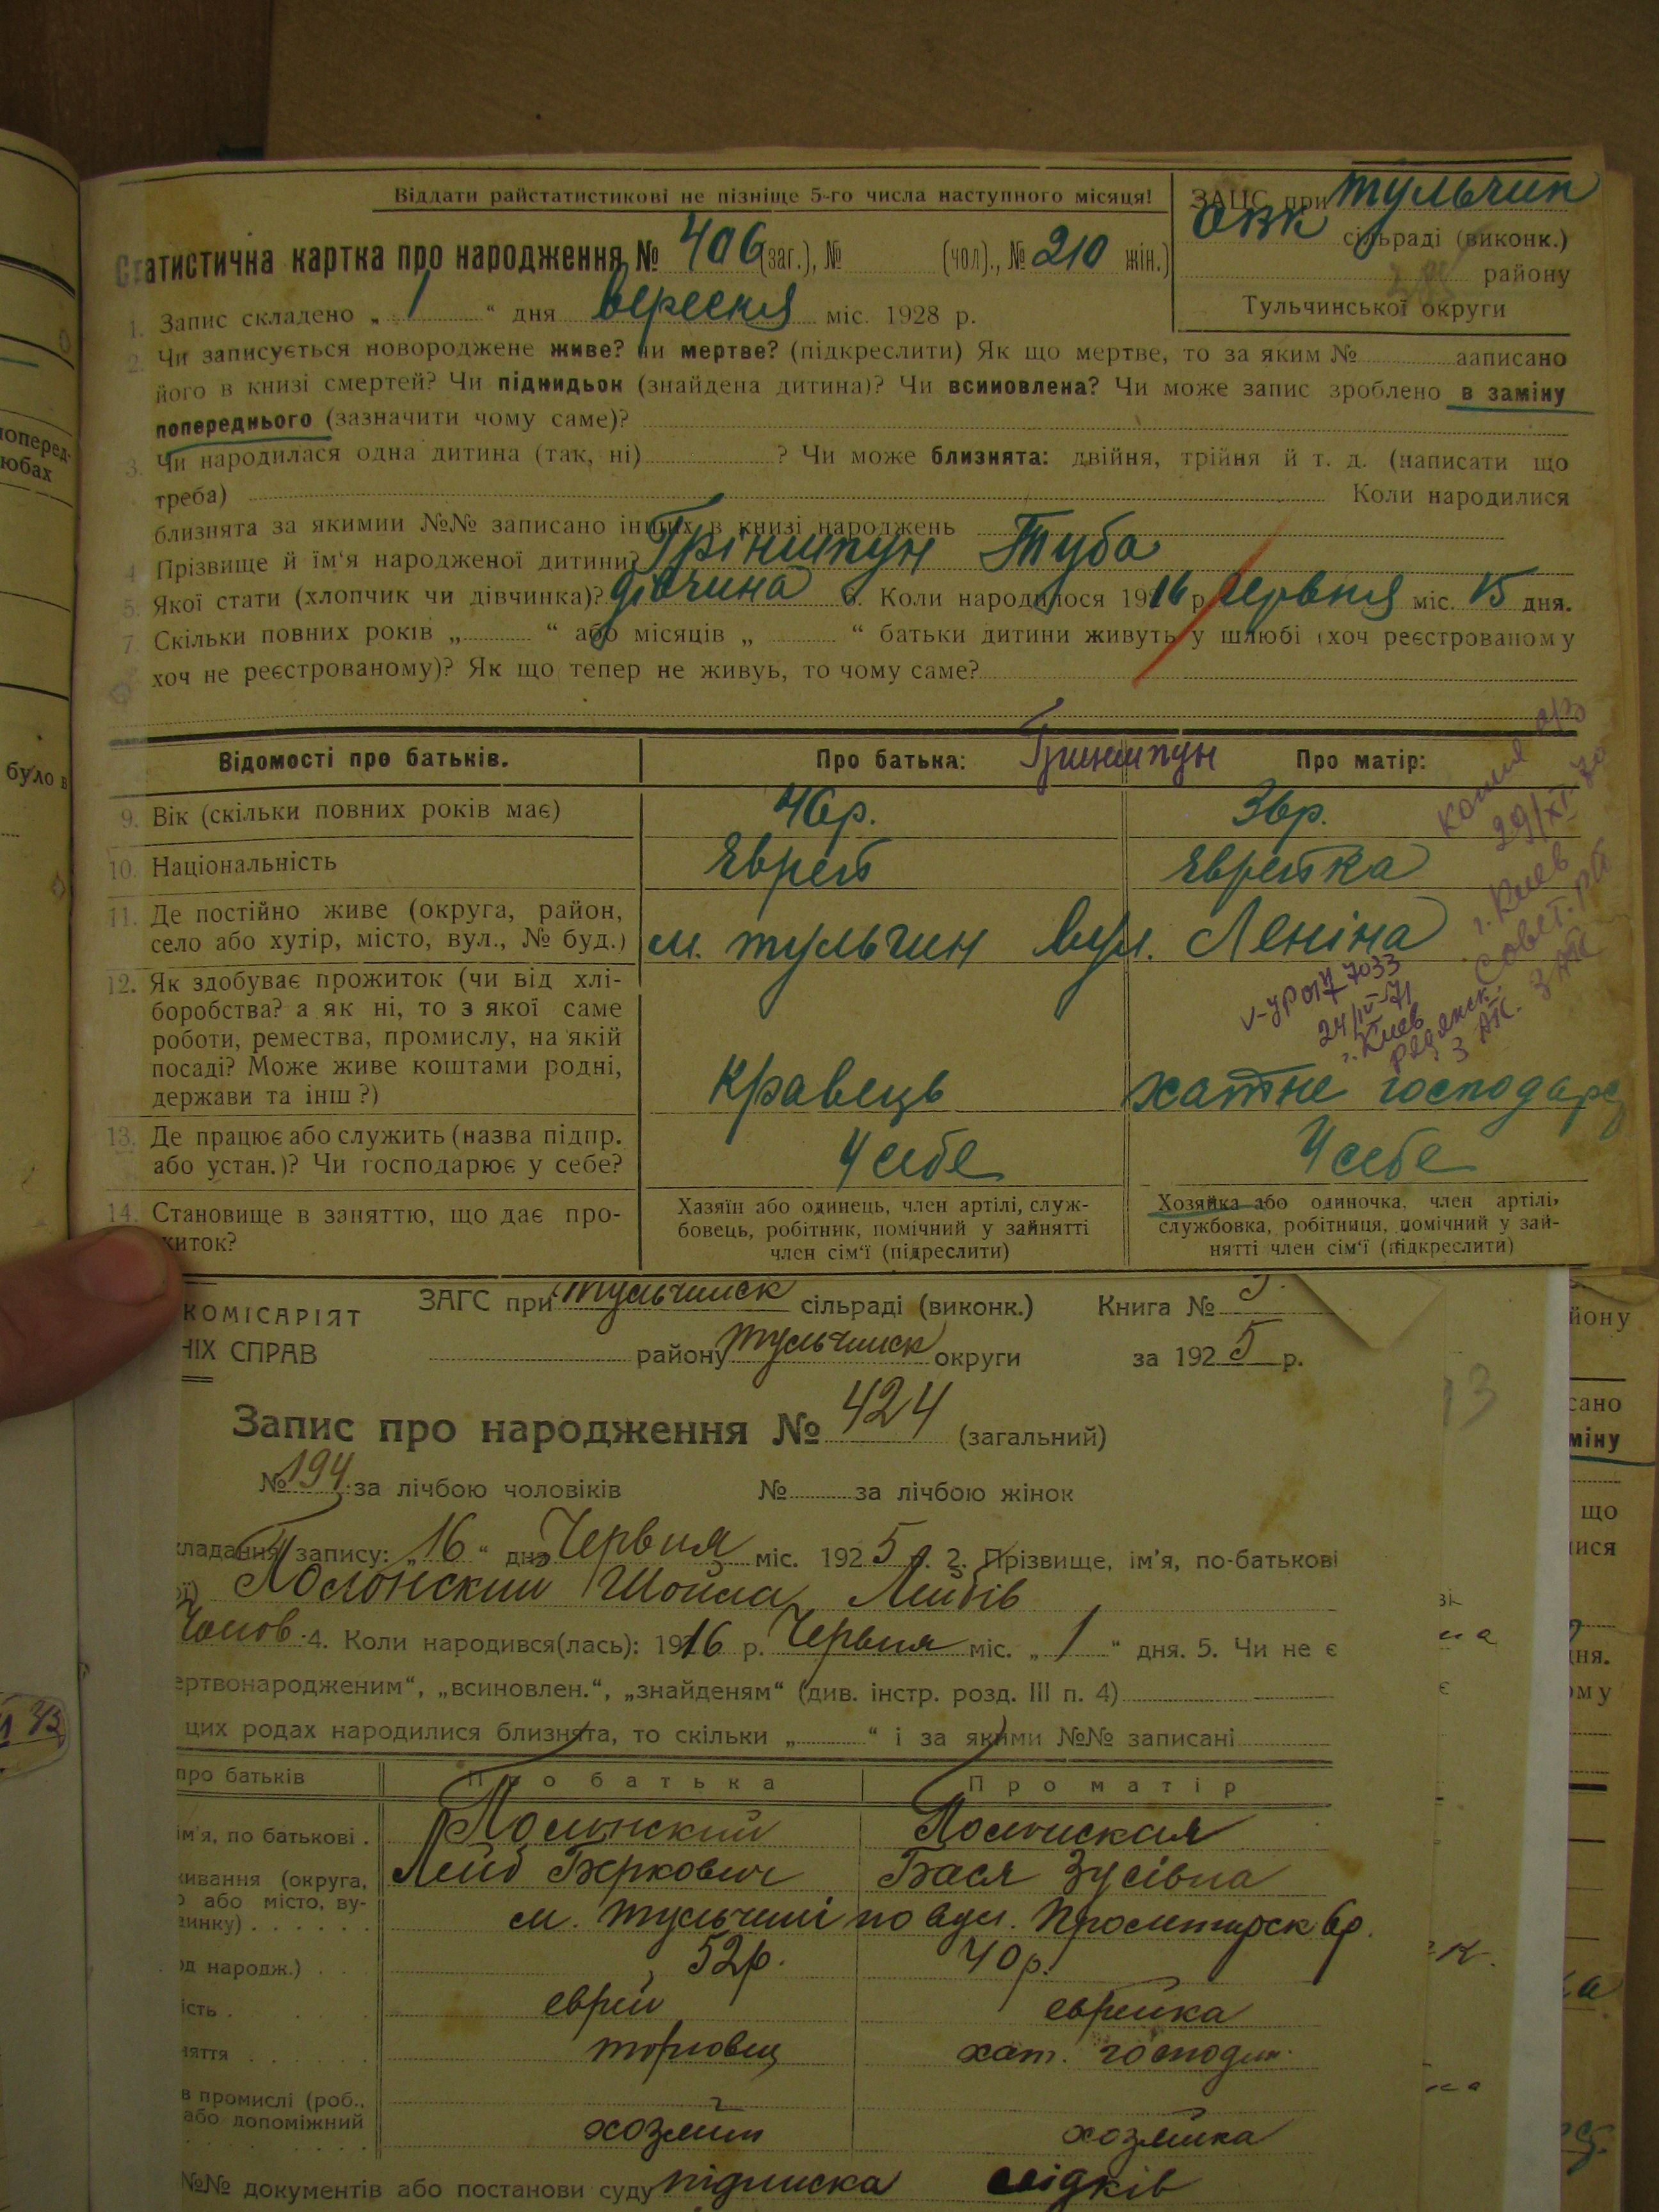 Віддати райстатистикові не пізніще 5-го числа наступного місяця!
ЗАЦС при Тульчин
ОВК сільраді (виконк.)
району
Тульчинської округи
Статистична картка про народження № 406 (заг.), № (чол)., № 210 жін.)
1. Запис складено „ 1 “ дня вересня міс. 1928 р.
2. Чи записується новороджене живе? чи мертве? (підкреслити) Як що мертве, то за яким № записано
його в книзі смертей? Чи піднидьок (знайдена дитина)? Чи всиновлена? Чи може запис зроблено в заміну
попереднього (зазначити чому саме)?
3. Чи народилася одна дитина (так, ні) ? Чи може близнята: двійня, трійня й т. д. (написати що
треба) Коли народилися
близнята за якимии №№ записано інших в книзі народжень
4. Прізвище й їм‘я народженої дитини? Гріншпун Туба
5. Якої стати (хлопчик чи дівчинка)? дівчина 6. Коли народилося 1916 р. червня міс. 15 дня.
7. Скільки повних років „ “ або місяців „ “ батьки дитини живуть у шлюбі (хоч реєстрованому
хоч не реєстрованому)? Як що тепер не живуь, то чому саме?
Відомості про батьків. Про батька: Гриншпун Про матір:
9. Вік (скільки повних років має) 46р. 36р.
10. Національність Єврей Єврейка
11. Де постійно живе (округа, район,
село або хутір, місто, вул., № буд.) м. Тульчин вул. Леніна
12. Як здобуває прожиток (чи від хлі-
боробства? а як ні, то з якої саме
роботи, ремества, промислу, на якій
посаді? Може живе коштами родні,
держави та інш ?) Кравець хатне господар
13. Де працює або служить (назва підпр.
або устан.)? Чи господарює у себе? У себе У себе
14. Становище в заняттю, що дає про-
житок?
Хазяїн або одинець, член артілі, служ-
бовець, робітник, помічний у зайнятті
член сім‘ї (підреслити)
Хозяйка або одиночка, член артілі,
службовка, робітниця, помічний у зай-
нятті член сім‘ї (підкреслити)
29/XI-70
г. Киев
Совет.
V-УР 017 7033
24/IV-71
г. Киев
КОМІСАРІЯТ
НІХ СПРАВ
ЗАГС при Тульчинск сільраді (виконк.) Книга №
району Тульчинск округи за 1925 р.
Запис про народження № 424 (загальний)
№ 194 за лічбою чоловіків № за лічбою жінок
кладання запису: „16“ дня Червня міс. 1925 р. 2. Прізвище, ім’я, по-батькові
Полонский Шойла Лейбів
Чолов. 4. Коли народився(лась): 1916 р. Червня міс. „ 1 “ дня. 5. Чи не є
ертвонародженим“, „всиновлен.“, „знайденям“ (див. інстр. розд. III п. 4)
цих родах народилися близнята, то скільки „ “ і за якими №№ записані
про батьків Про батька Про матір
ім’я, по батькові . Полонский Полонская
Лейб Беркович Бася Зусівна
ивання (округа,
або місто, ву-
инку) м. Тульчині по вул.
од народж.) 52р. 40р.
ість еврей еврейка
няття торговец хат. господин.
в промислі (роб.,
або допоміжний хозяин хозяйка
№№ документів або постанови суду підписка свідків
13
оперед-
юбах
було в
йону
сано
міну
що
ися
дня.
ому